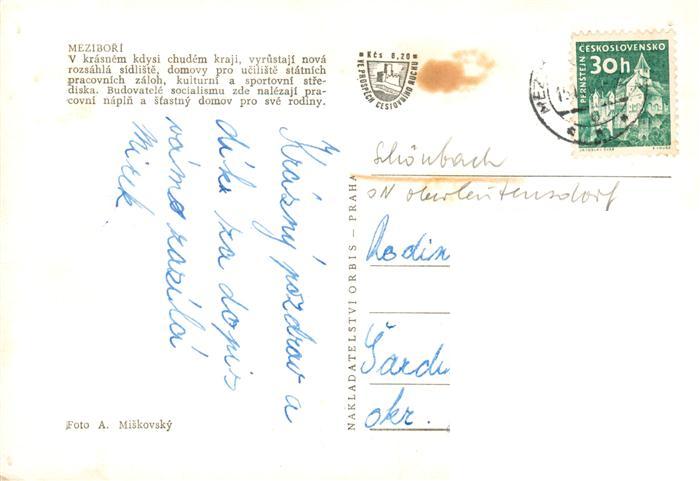 MEZIBOŘÍ
V krásném kdysi chudém kraji, vyrůstají nová
rozsáhlá sídliště, domovy pro učiliště státních
pracovních záloh, kulturní a sportovní stře-
diska. Budovatelé socialismu zde nalézají pra-
covní náplň a šťastný domov pro své rodiny.
Krásný pozdrav a
díky za dopis
vám zasílá
Mirek
Foto A. Miškovský
NAKLADATELSTVÍ ORBIS — PRAHA
Kčs 0,20
VE PROSPĚCH CESTOVNÍHO RUCHU
ČESKOSLOVENSKO
PERNŠTEJN
30h
MEZ
Schönbach
ON Oberleutensdorf
Rodin
Šardi
okr.